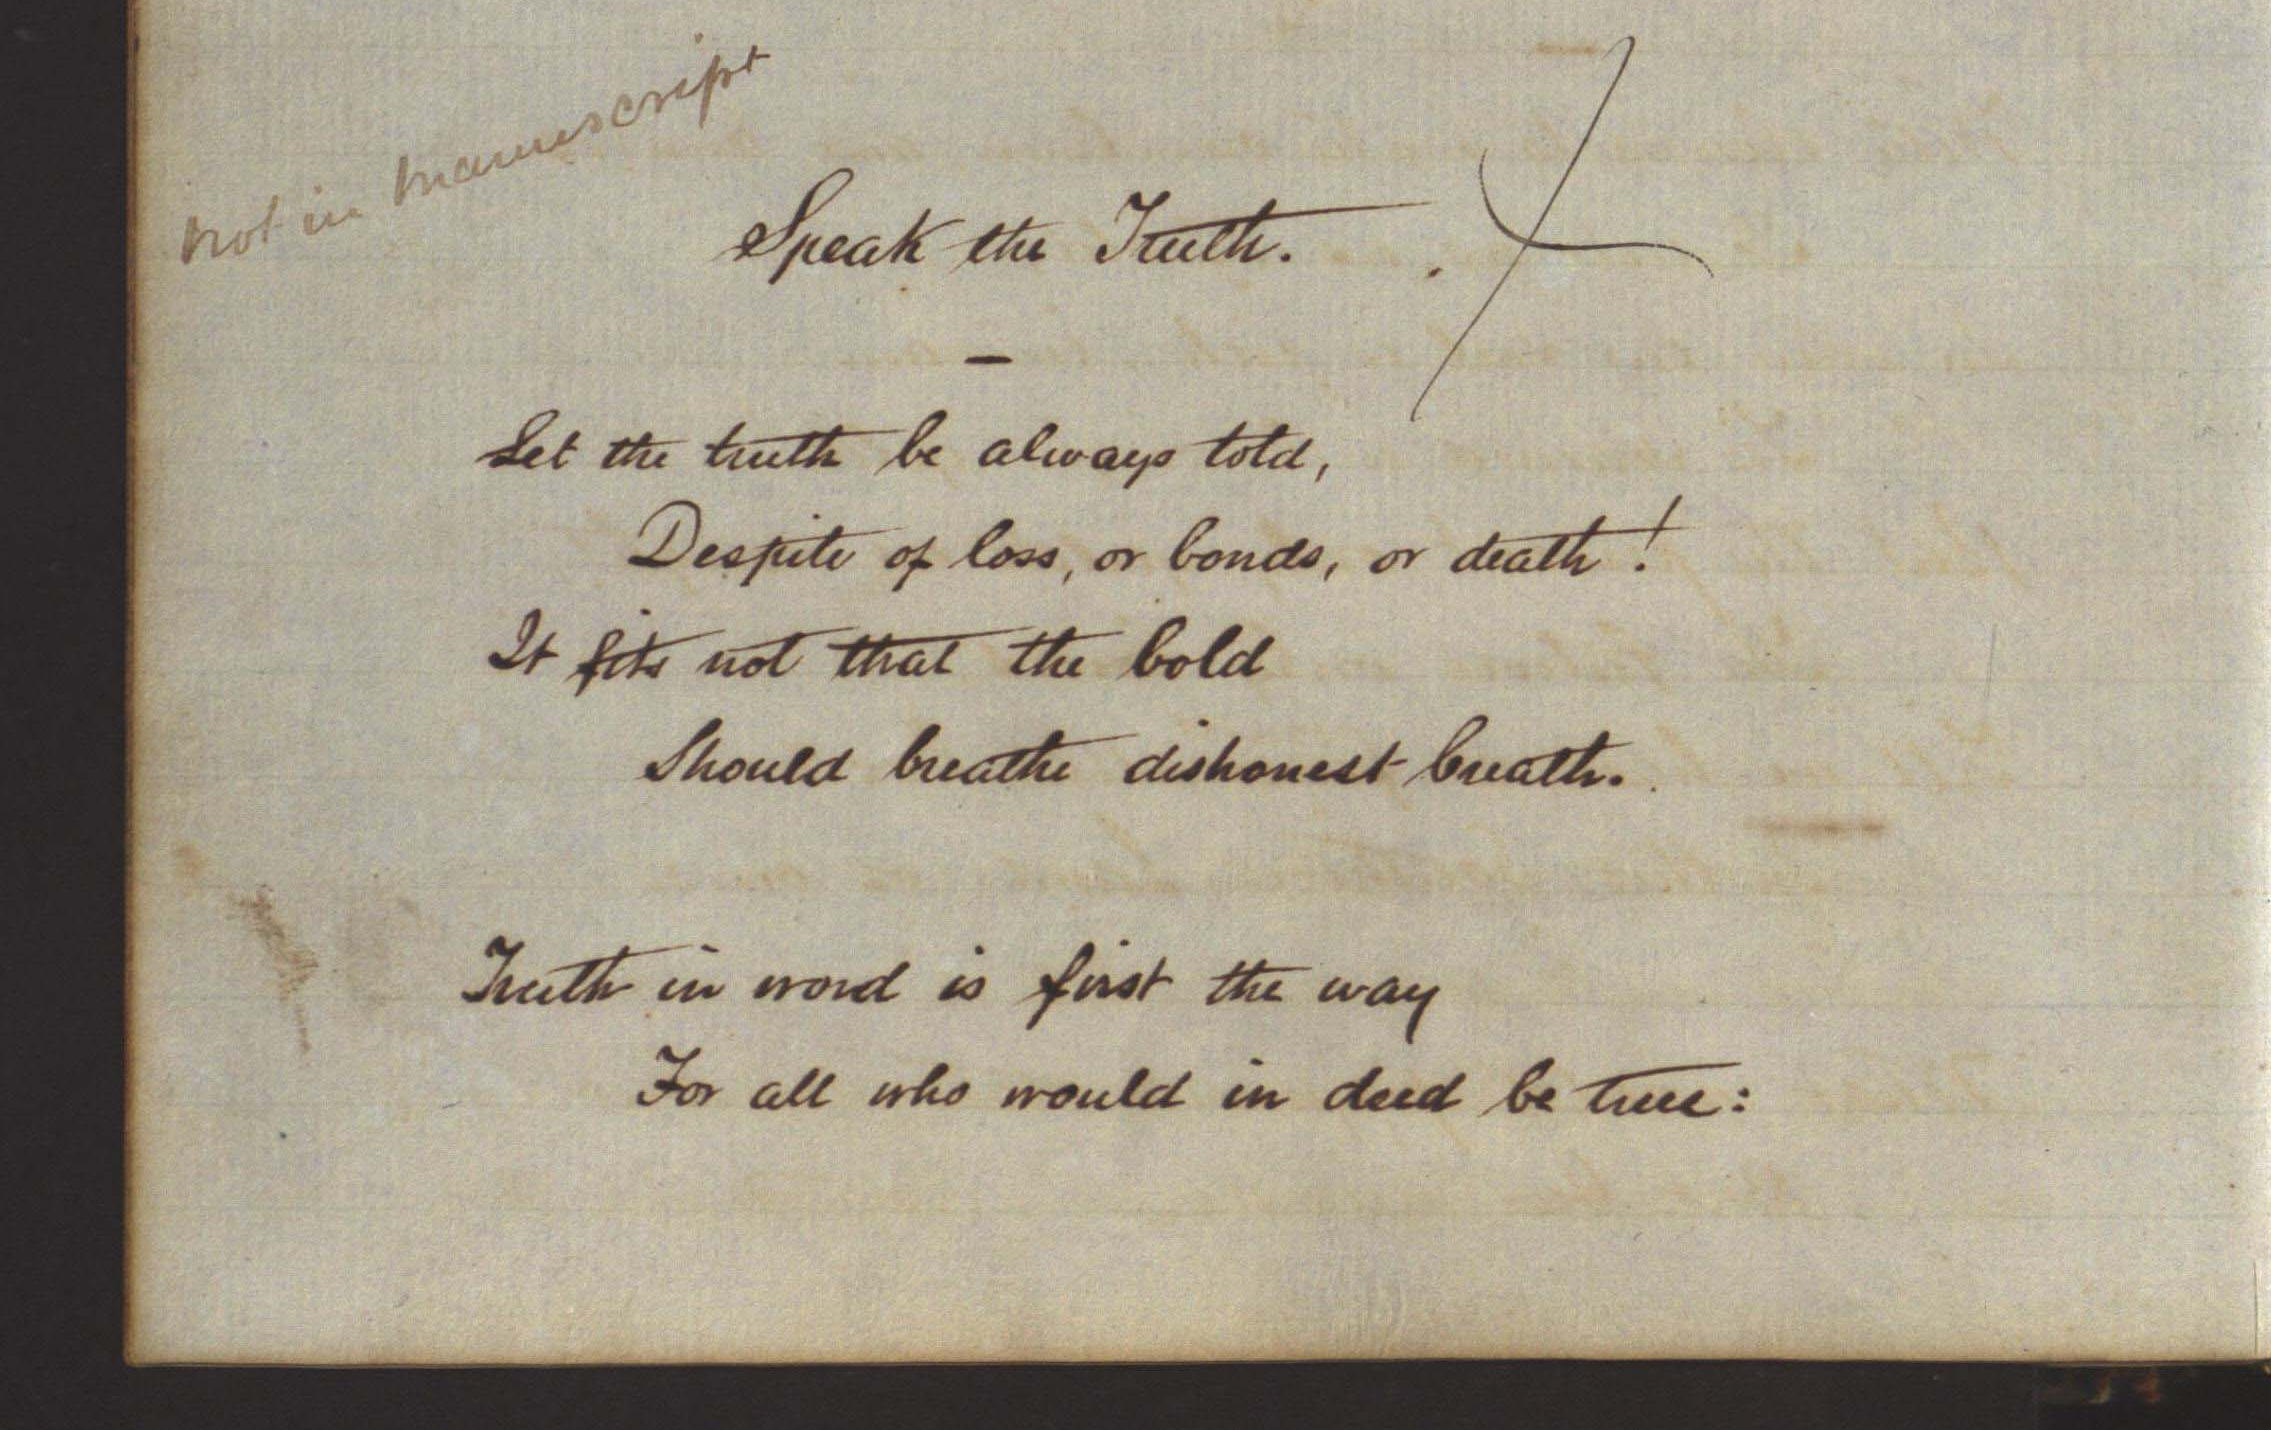 not in manuscript
Speak the Truth.
Let the truth be always told,
Despite of loss, or bonds, or death!
It fits not that the bold
Should breathe dishonest breath.
Truth in word is first the way
For all who would in deed be true: